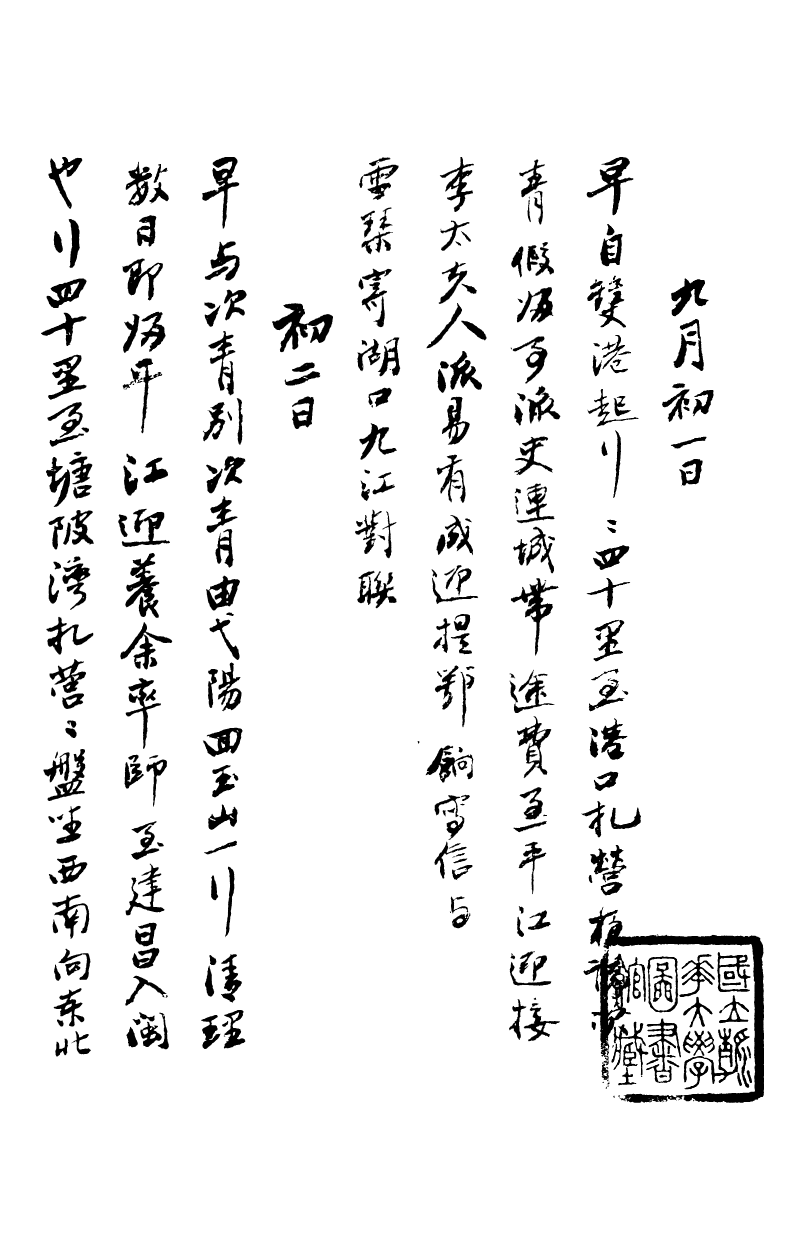 九月初一日
早自雙港起行〻四十里至港口扎營
青假歸事派史連城帶途費至平江迎接
李太夫人派易有成迎提鄂餉寫信与
雪琴寄湖口九江對聯
初二日
早与次青別次青由弋陽回玉山一行清理
數日即歸平江迎養余率師至建昌入閩
也行四十里至塘陂灣扎營〻盤坐西南向東北
國立清
華大學
圖書
館藏